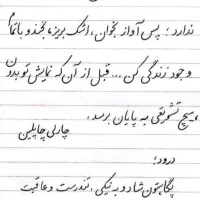 ندارد؛ پس آواز بخوان، اشک بریز، بخند و با تمام
وجود زندگی کن ... قبل از آن که نمایش تو بدون
هیچ تشویقی به پایان برسد.
چارلی چاپلین
درود؛
پگاهتون شاد و به نیکی، تندرست و عاقبت